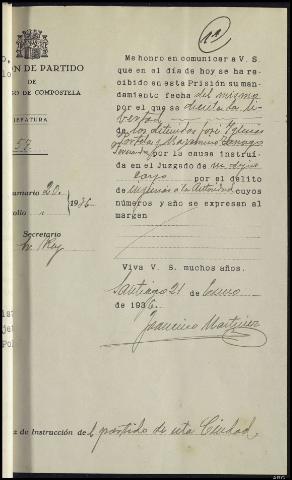 1ª
Me honro en comunicar a V. S.
que en el día de hoy se ha re-
cibido en esta Prisión su man-
damiento fecha del mismo
por el que se decreta li-
bertad
de los detenidos José Iglesias
por la causa instruí-
da en el Juzgado de su digno
cargo por el delito
de a la Autoridad cuyos
números y año se expresan al
margen
Viva V. S. muchos años.
Santiago 21 de Enero
de 1936.
Francisco Martínez
ÓN DE PARTIDO
DE
GO DE COMPOSTELA
EFATURA
57
umario 20
olio 1936
Secretario
Rey
z de Instrucción del partido de esta Ciudad.